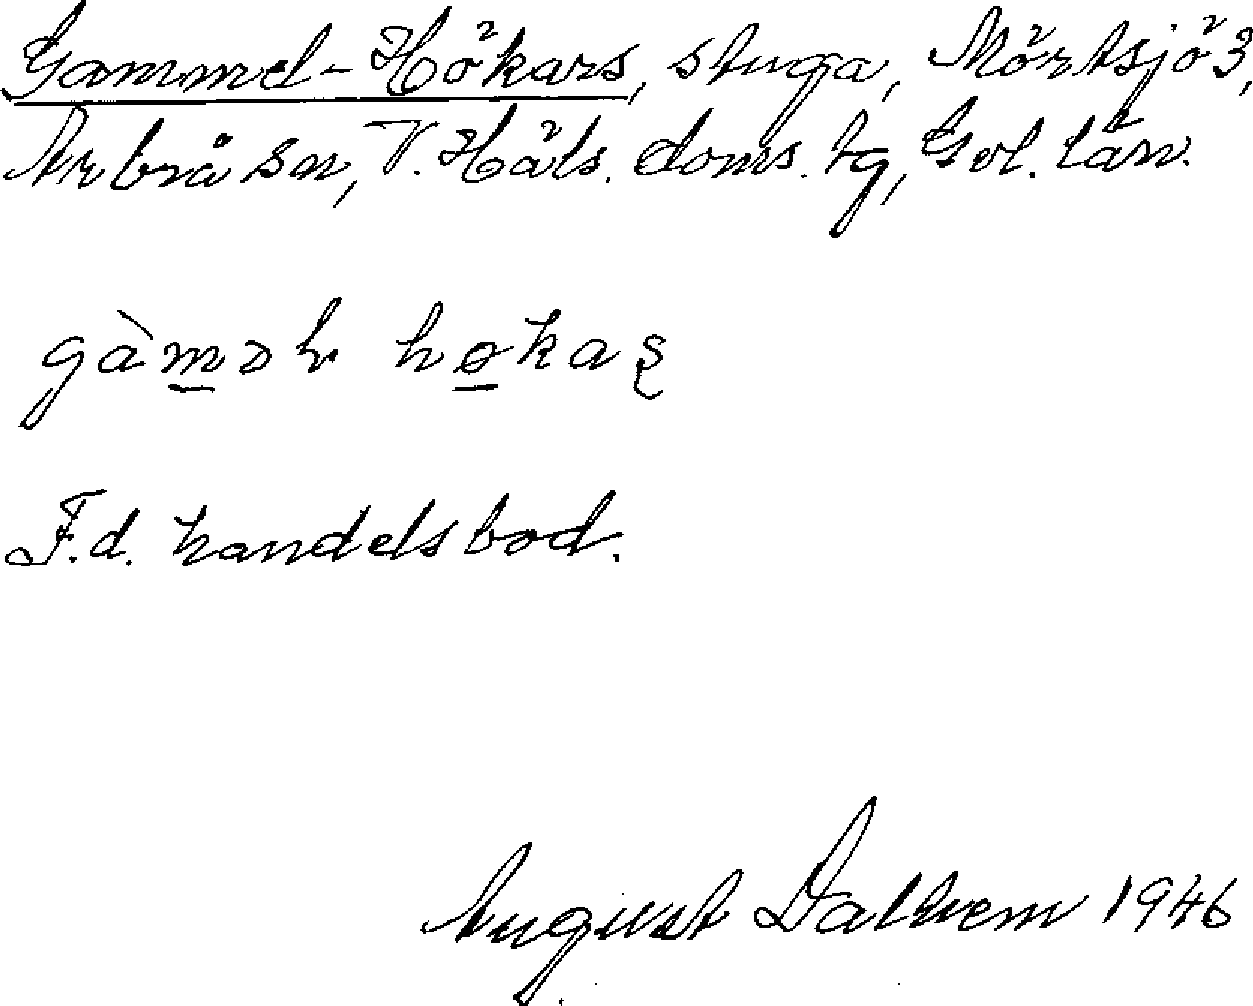 Gammel-Hökars, stuga, Mörtsjö 3,
Arbrå sn, V. Häls. doms. tg, Gvl. län.
gàməl høkaʂ
F.d. handelsbod.
August Dalhem 1946